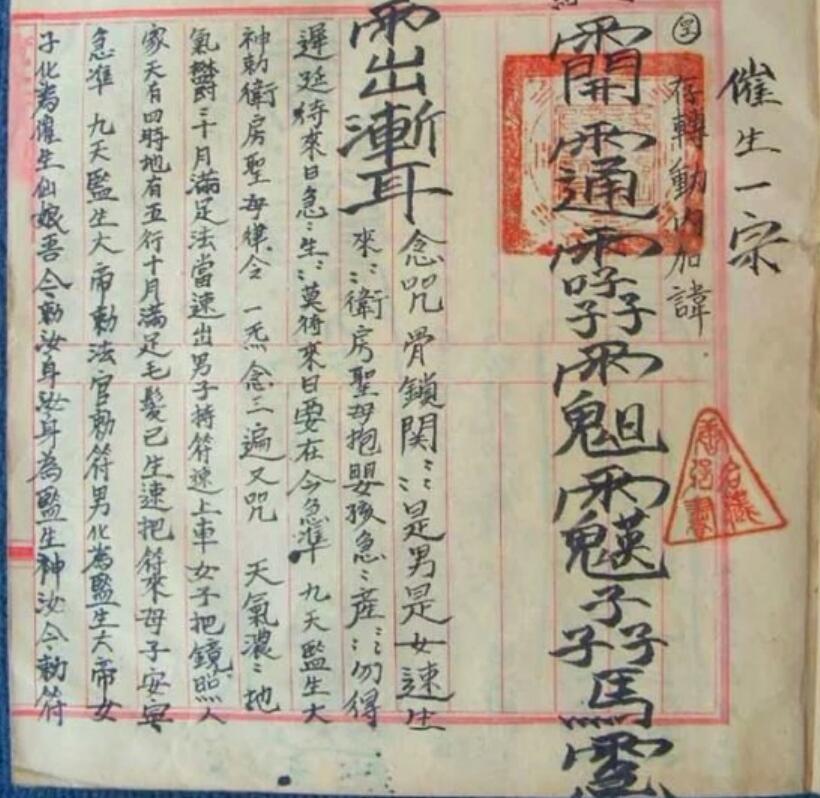 催生一宗
存轉動内加諱
雨出漸耳
念咒 骨鎖関〻〻是男是女速生
來〻〻衛房聖母抱嬰孩急〻產〻〻勿得
遲延待來日急〻生〻〻莫待來日要在今急準 九天監生大
神勅衛房聖母律令 一炁念三遍又咒 天氣濃〻地
氣欝〻十月滿足法當速出男子持符速上車女子把鏡照人
家天有四時地有五行十月滿足毛髮已生速把符來母子安寧
急準 九天監生大帝勅法官勅符男化為監生大帝女
子化為催生仙娘吾今勅汝身汝身為監生神汝今勅符